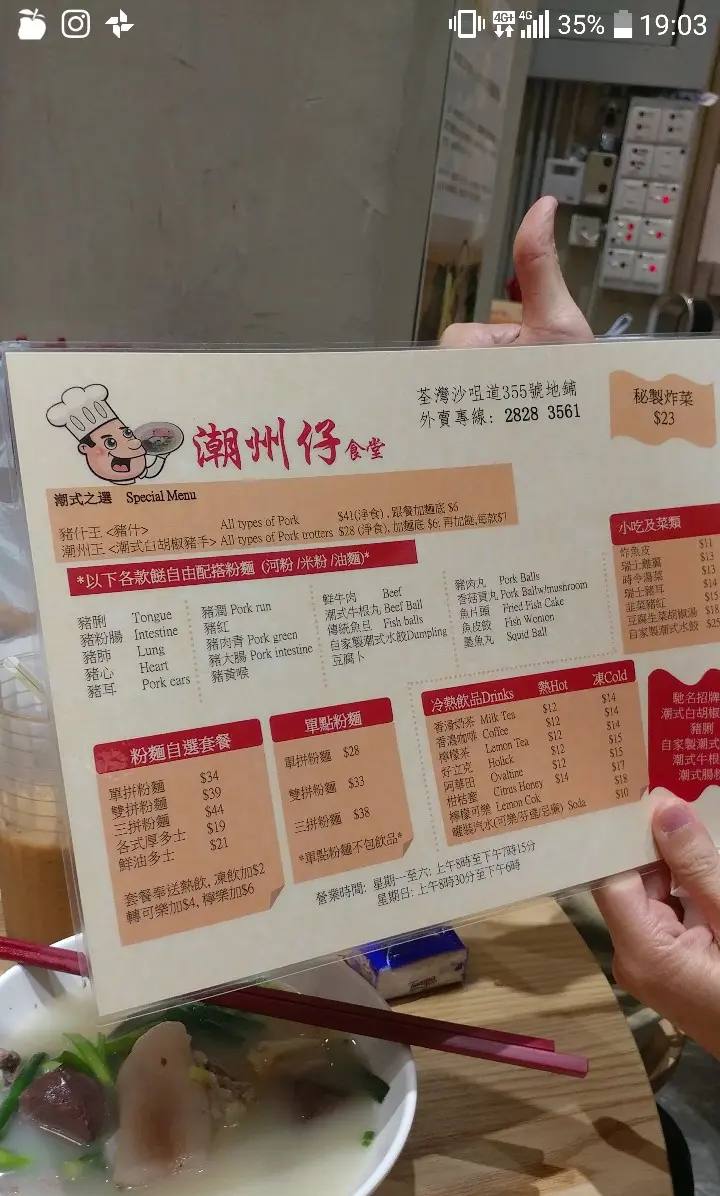 4G+ 4G 35% 19:03
荃灣沙咀道355號地鋪
外賣專線: 2828 3561
潮州仔食堂
秘製炸菜
$23
潮式之選 Special Menu
豬什王 <豬什> All types of Pork $41(淨食), 跟餐加麵底 $6
潮州王 <潮式白胡椒豬手> All types of Pork trotters $28 (淨食), 加麵底 $6; 再加餸,每款$7
*以下各款餸自由配搭粉麵 (河粉 /米粉 /油麵)*
豬脷 Tongue
豬粉腸 Intestine
豬肺 Lung
豬心 Heart
豬耳 Pork ears
豬潤 Pork run
豬紅
豬肉青 Pork green
豬大腸 Pork intestine
豬黃喉
鮮牛肉 Beef
潮式牛根丸 Beef Ball
傳統魚旦 Fish balls
自家製潮式水餃Dumpling
豆腐卜
豬肉丸 Pork Balls
香菇貢丸 Pork Ballw/mushroom
魚片頭 Fried Fish Cake
魚皮餃 Fish Wonton
墨魚丸 Squid Ball
小吃及菜類
炸魚皮 $11
瑞士雞翼 $13
時令湯菜 $13
瑞士豬耳 $14
韮菜豬紅 $15
豆腐生菜胡椒湯 $18
自家製潮式水餃 $25
粉麵自選套餐
單拼粉麵 $34
雙拼粉麵 $39
三拼粉麵 $44
各式厚多士 $19
鮮油多士 $21
套餐奉送熱飲, 凍飲加$2
轉可樂加$4, 檸樂加$6
單點粉麵
單拼粉麵 $28
雙拼粉麵 $33
三拼粉麵 $38
*單點粉麵不包飲品*
冷熱飲品Drinks 熱Hot 凍Cold
香滑奶茶 Milk Tea $12 $14
香濃咖啡 Coffee $12 $14
檸檬茶 Lemon Tea $12 $14
好立克 Holick $12 $15
阿華田 Ovaltine $12 $15
柑桔蜜 Citrus Honey $14 $17
檸檬可樂 Lemon Cok $18
罐裝汽水(可樂/芬達/忌廉) Soda $10
馳名招牌
潮式白胡椒
豬脷
自家製潮式
潮式牛根
潮式腸粉
營業時間: 星期一至六: 上午8時至下午7時15分
星期日: 上午8時30分至下午6時